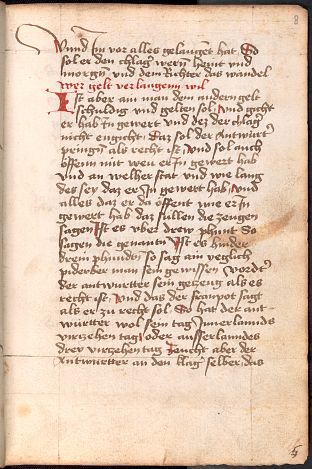 8
Wund Im vor alles gelaugent hat So
sol er den chlag wern heint vnd
morgn vnd dem Richter das wandel
wer gelt verlangenn wil
Ist aber am man dem andern gelt
schuldig vnd gelten sol vnd gicht
er hab In gewert vnd dez der chlag
nicht engicht Daz sol der Antwurt
pringn als recht ist vnd sol auch
offenn mit wew er In gewert hab
vnd an welher stat vnd wie lang
des sey daz er In gewert hab vnd
alles daz er da offent wie er In
gewert hab daz sullen die zeugen
sagen Ist es vber drew phunt So
sagen die genantn Ist es hinder
drein phunden so sag ain yeglich
piderber man sein gewissen wordt
der antwurtter sein gezeug als es
recht ist vnd das der franpot sagt
als er zu recht sol So hat der ant-
wurtter wol sein tag Innerlannds
virzehen tag oder ausserlanndes
drey virzehen tag Zeucht aber der
Antwurtter an den klag selber das